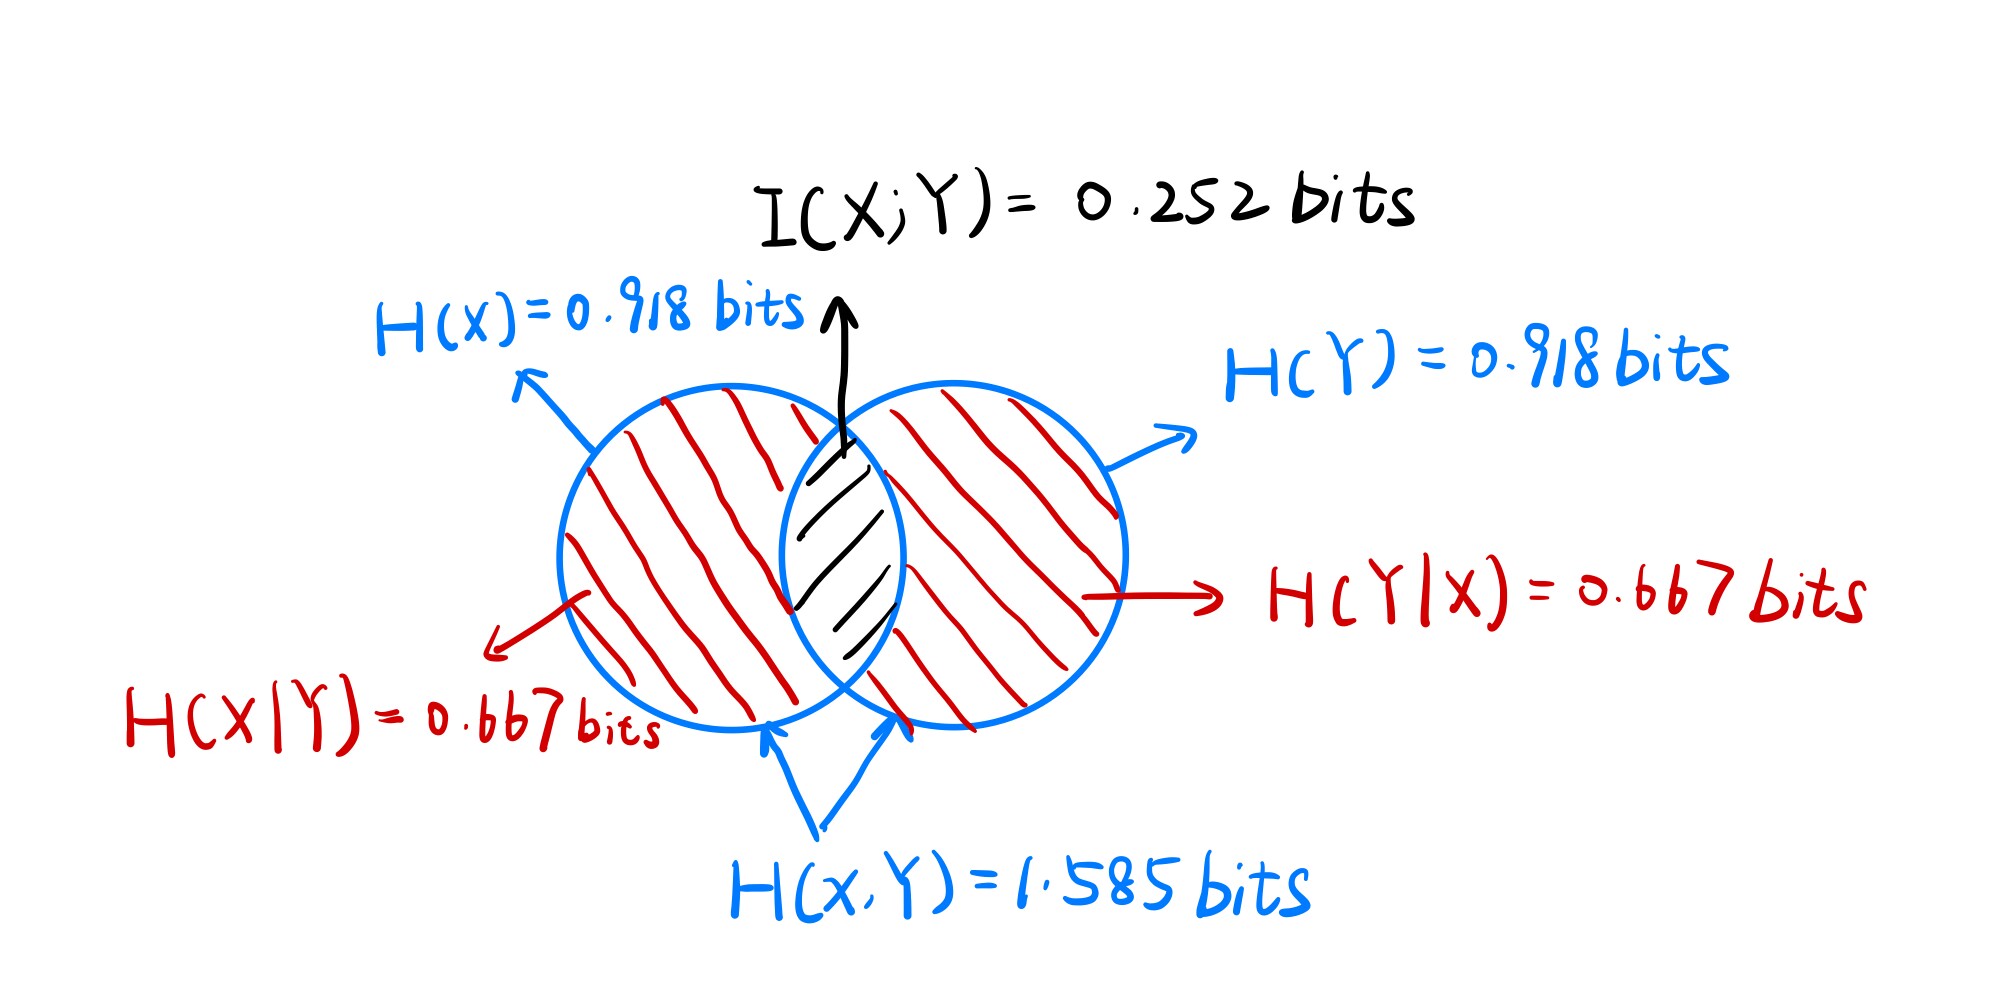 I(X;Y) = 0.252 bits
H(X) = 0.918 bits
H(Y) = 0.918 bits
H(Y|X) = 0.667 bits
H(X|Y) = 0.667 bits
H(X,Y) = 1.585 bits